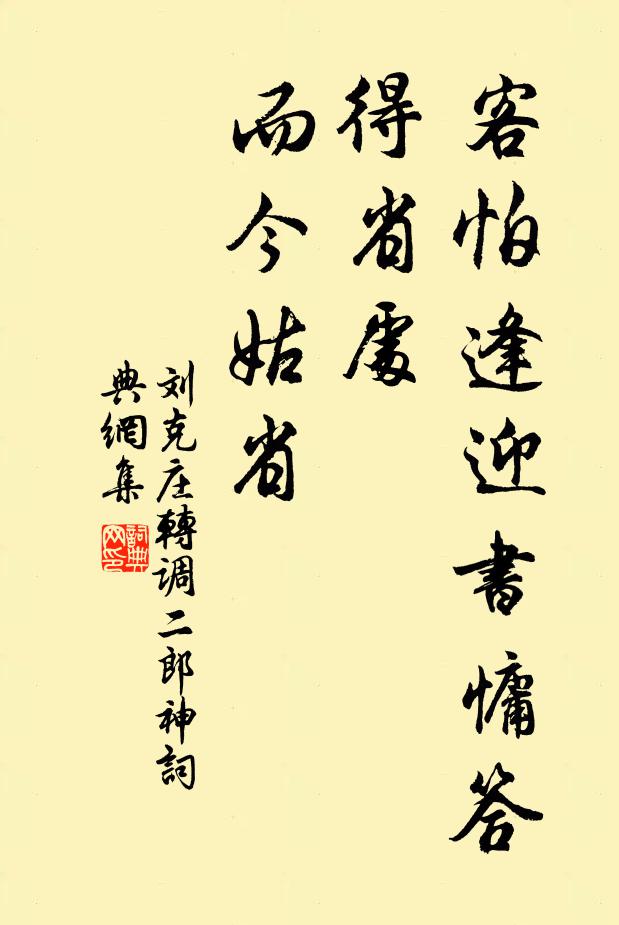 客怕逢迎書慵答
得省處
而今姑省
刘克庄轉调二郎神詞
典網集
詞典网印